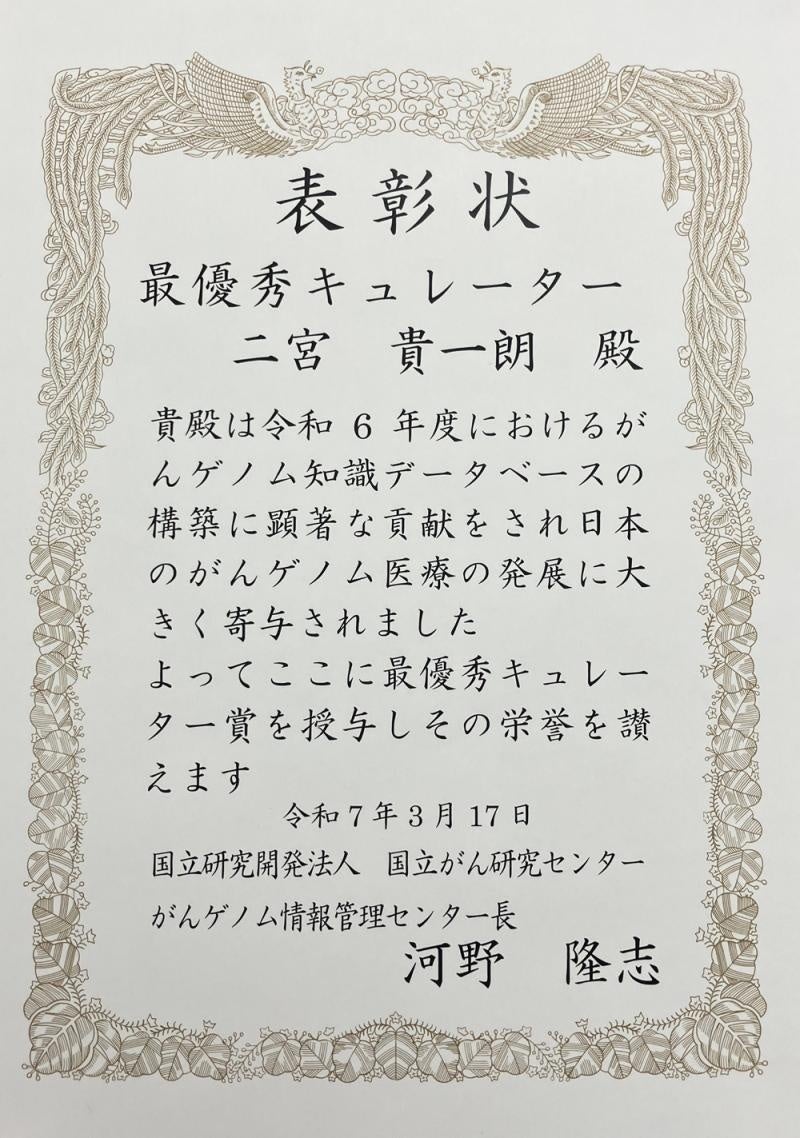 表彰状
最優秀キュレーター
二宮　貴一朗　殿
貴殿は令和 6 年度におけるが
んゲノム知識データベースの
構築に顕著な貢献をされ日本
のがんゲノム医療の発展に大
きく寄与されました
よってここに最優秀キュレー
ター賞を授与しその栄誉を讃
えます
令和 7 年 3 月 17 日
国立研究開発法人　国立がん研究センター
がんゲノム情報管理センター長
河野　隆志